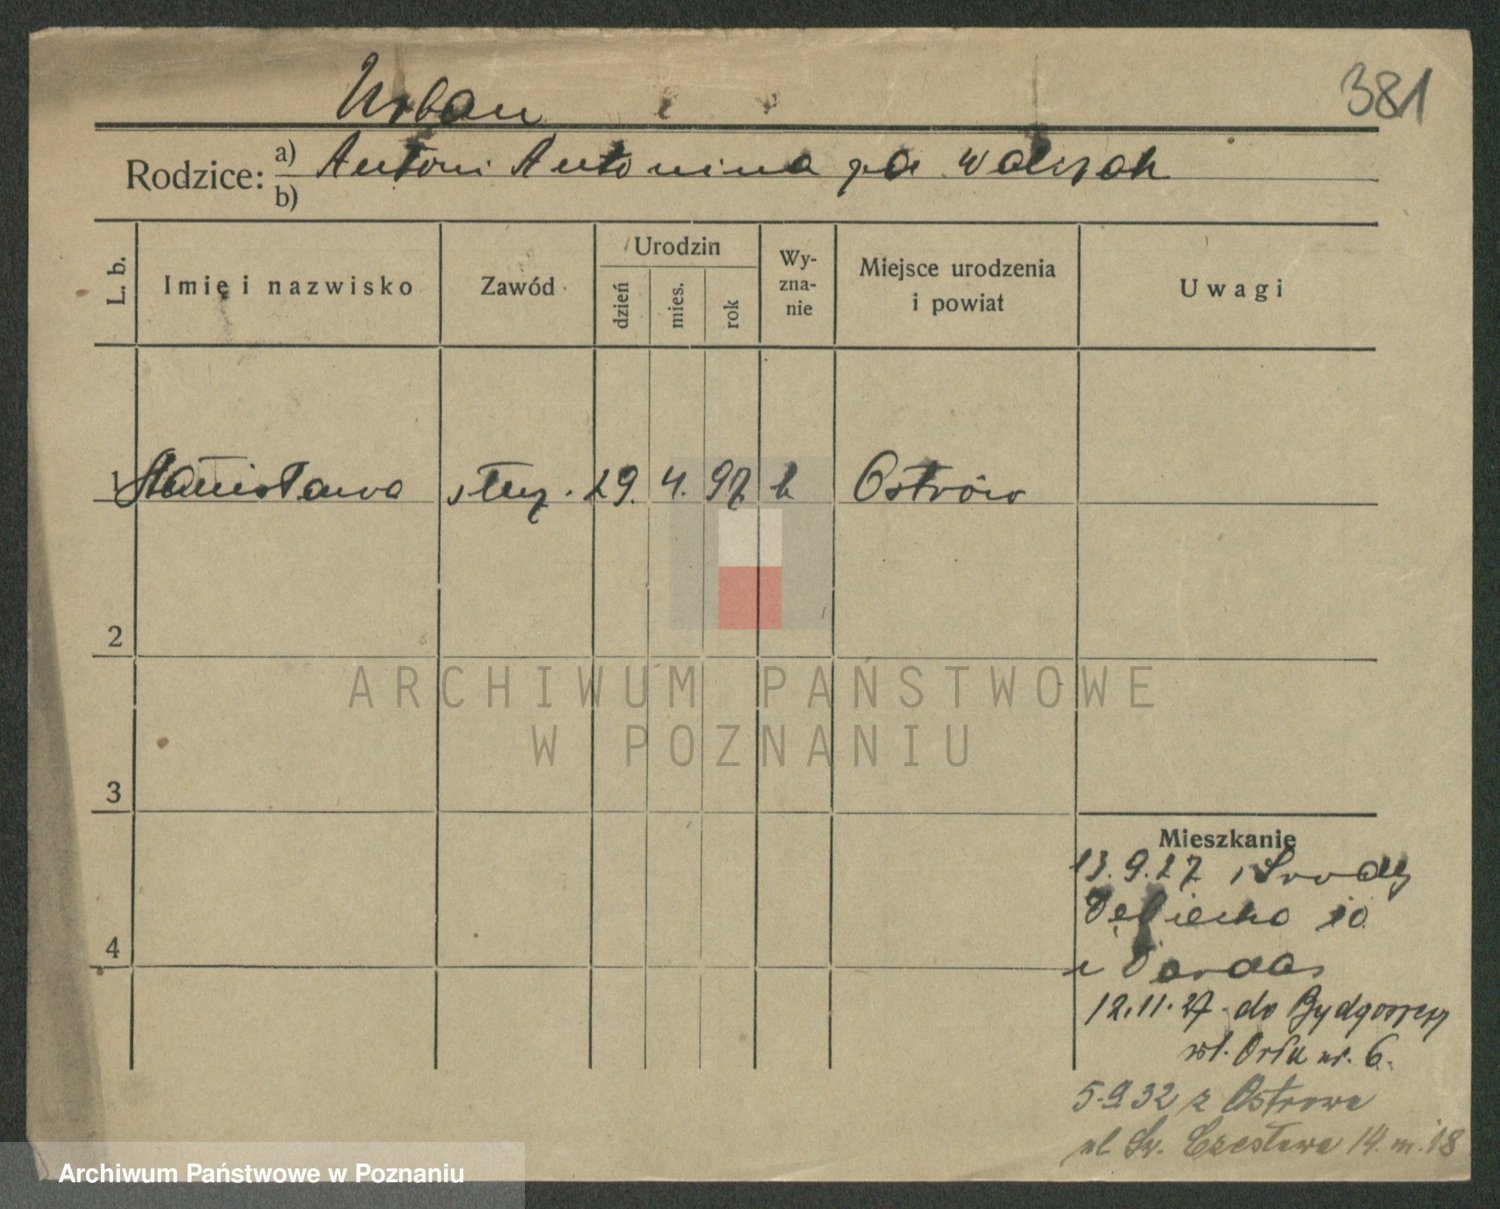 381
Urban
Rodzice:
a) Antoni Antonina zd. Walczak
b)
L. b.
Imię i nazwisko
Zawód
Urodzin
dzień
mies.
rok
Wy-
zna-
nie
Miejsce urodzenia
i powiat
Uwagi
1 Stanisława służ. 29. 4. 97 k Ostrów
2
3
4
Mieszkanie
13.9.27 z Środy
Dębiecka 10
12.11.27 do Bydgoszczy
nr. 6.
5.9.32 z Ostrowa
ul Św. Czesława 14 m. 18
ARCHIWUM PAŃSTWOWE
W POZNANIU
Archiwum Państwowe w Poznaniu